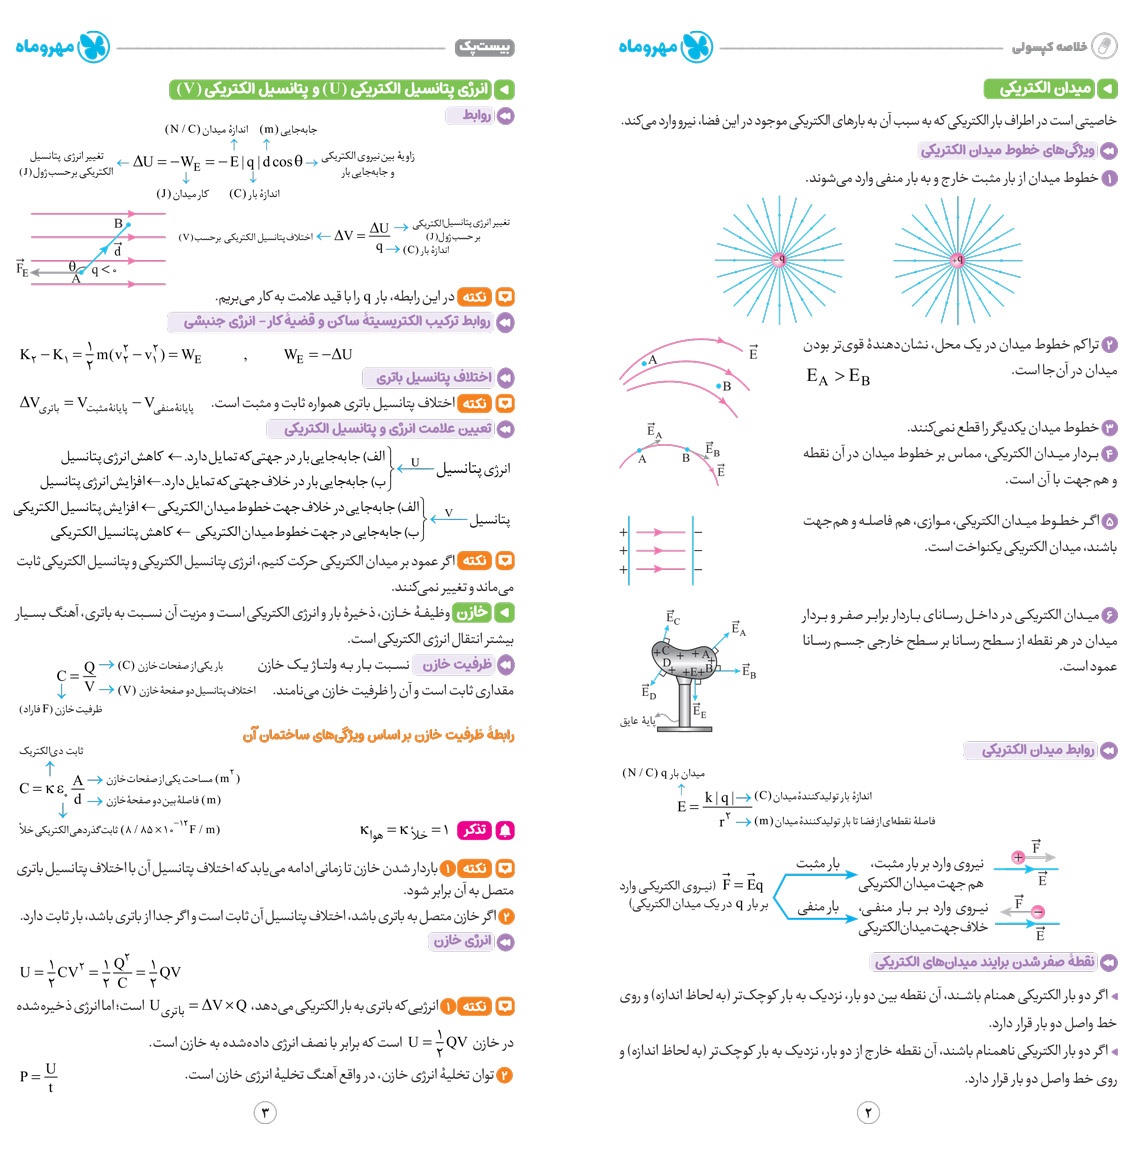 خلاصه کپسولی
مهروماه
میدان الکتریکی
خاصیتی است در اطراف بار الکتریکی که به سبب آن به بارهای الکتریکی موجود در این فضا، نیرو وارد می‌کند.
ویژگی‌های خطوط میدان الکتریکی
۱ خطوط میدان از بار مثبت خارج و به بار منفی وارد می‌شوند.
-q
+q
۲ تراکم خطوط میدان در یک محل، نشان‌دهندهٔ قوی‌تر بودن
میدان در آن‌جا است. E_A > E_B
A
B
E
۳ خطوط میدان یکدیگر را قطع نمی‌کنند.
۴ بردار میدان الکتریکی، مماس بر خطوط میدان در آن نقطه
و هم‌جهت با آن است.
E_A
A B E_B
E
۵ اگر خطوط میدان الکتریکی، موازی، هم فاصله و هم‌جهت
باشند، میدان الکتریکی یکنواخت است.
+ −
+ −
+ −
۶ میدان الکتریکی در داخل رسانای باردار برابر صفر و بردار
میدان در هر نقطه از سطح رسانا بر سطح خارجی جسم رسانا
عمود است.
E_C
E_A
C A
D E B E_B
E_D
E_E
پایهٔ عایق
روابط میدان الکتریکی
میدان بار q (N/C)
E = k|q| / r²
اندازهٔ بار تولیدکنندهٔ میدان (C)
فاصلهٔ نقطه‌ای از فضا تا بار تولیدکنندهٔ میدان (m)
نیروی وارد بر بار مثبت، بار مثبت
هم جهت میدان الکتریکی
F = Eq (نیروی الکتریکی وارد
بر بار q در یک میدان الکتریکی)
نیروی وارد بر بار منفی، بار منفی
خلاف جهت میدان الکتریکی
+ F
E
F −
E
نقطهٔ صفر شدن برایند میدان‌های الکتریکی
اگر دو بار الکتریکی همنام باشند، آن نقطه بین دو بار، نزدیک به بار کوچک‌تر (به لحاظ اندازه) و روی
خط واصل دو بار قرار دارد.
اگر دو بار الکتریکی ناهمنام باشند، آن نقطه خارج از دو بار، نزدیک به بار کوچک‌تر (به لحاظ اندازه) و
روی خط واصل دو بار قرار دارد.
۲
بیست‌پک
مهروماه
انرژی پتانسیل الکتریکی (U) و پتانسیل الکتریکی (V)
روابط
جابه‌جایی (m) اندازهٔ میدان (N/C)
زاویهٔ بین نیروی الکتریکی
و جابه‌جایی بار
ΔU = −W_E = −E|q|d cosθ
تغییر انرژی پتانسیل
الکتریکی برحسب ژول (J)
اندازهٔ بار (C) کار میدان (J)
تغییر انرژی پتانسیل الکتریکی
برحسب ژول (J)
ΔV = ΔU / q
اختلاف پتانسیل الکتریکی برحسب (V)
اندازهٔ بار (C)
B
d
F_E θ q < ۰
A
نکته در این رابطه، بار q را با قید علامت به کار می‌بریم.
روابط ترکیب الکتریسیتهٔ ساکن و قضیهٔ کار - انرژی جنبشی
K₂ − K₁ = ۱/۲ m(v₂² − v₁²) = W_E , W_E = −ΔU
اختلاف پتانسیل باتری
نکته اختلاف پتانسیل باتری همواره ثابت و مثبت است. ΔV باتری = V پایانهٔ مثبت − V پایانهٔ منفی
تعیین علامت انرژی و پتانسیل الکتریکی
انرژی پتانسیل U
الف) جابه‌جایی بار در جهتی که تمایل دارد. ← کاهش انرژی پتانسیل
ب) جابه‌جایی بار در خلاف جهتی که تمایل دارد. ← افزایش انرژی پتانسیل
پتانسیل V
الف) جابه‌جایی در خلاف جهت خطوط میدان الکتریکی ← افزایش پتانسیل الکتریکی
ب) جابه‌جایی در جهت خطوط میدان الکتریکی ← کاهش پتانسیل الکتریکی
نکته اگر عمود بر میدان الکتریکی حرکت کنیم، انرژی پتانسیل الکتریکی و پتانسیل الکتریکی ثابت
می‌ماند و تغییر نمی‌کنند.
خازن وظیفهٔ خازن، ذخیرهٔ بار و انرژی الکتریکی است و مزیت آن نسبت به باتری، آهنگ بسیار
بیشتر انتقال انرژی الکتریکی است.
ظرفیت خازن نسبت بار به ولتاژ یک خازن
مقداری ثابت است و آن را ظرفیت خازن می‌نامند.
C = Q / V
بار یکی از صفحات خازن (C)
اختلاف پتانسیل دو صفحهٔ خازن (V)
ظرفیت خازن (F فاراد)
رابطهٔ ظرفیت خازن بر اساس ویژگی‌های ساختمان آن
ثابت دی‌الکتریک
C = κ ε₀ A / d
مساحت یکی از صفحات خازن (m²)
فاصلهٔ بین دو صفحهٔ خازن (m)
ثابت گذردهی الکتریکی خلأ (۸/۸۵×۱۰⁻¹² F/m)
تذکر κ هوا = κ خلأ = ۱
نکته ۱ باردار شدن خازن تا زمانی ادامه می‌یابد که اختلاف پتانسیل آن با اختلاف پتانسیل باتری
متصل به آن برابر شود.
۲ اگر خازن متصل به باتری باشد، اختلاف پتانسیل آن ثابت است و اگر جدا از باتری باشد، بار ثابت دارد.
انرژی خازن
U = ۱/۲ CV² = ۱/۲ Q²/C = ۱/۲ QV
نکته ۱ انرژیی که باتری به بار الکتریکی می‌دهد، U باتری = ΔV×Q است؛ اما انرژی ذخیره شده
در خازن U = ۱/۲ QV است که برابر با نصف انرژی داده‌شده به خازن است.
۲ توان تخلیهٔ انرژی خازن، در واقع آهنگ تخلیهٔ انرژی خازن است. P = U / t
۳